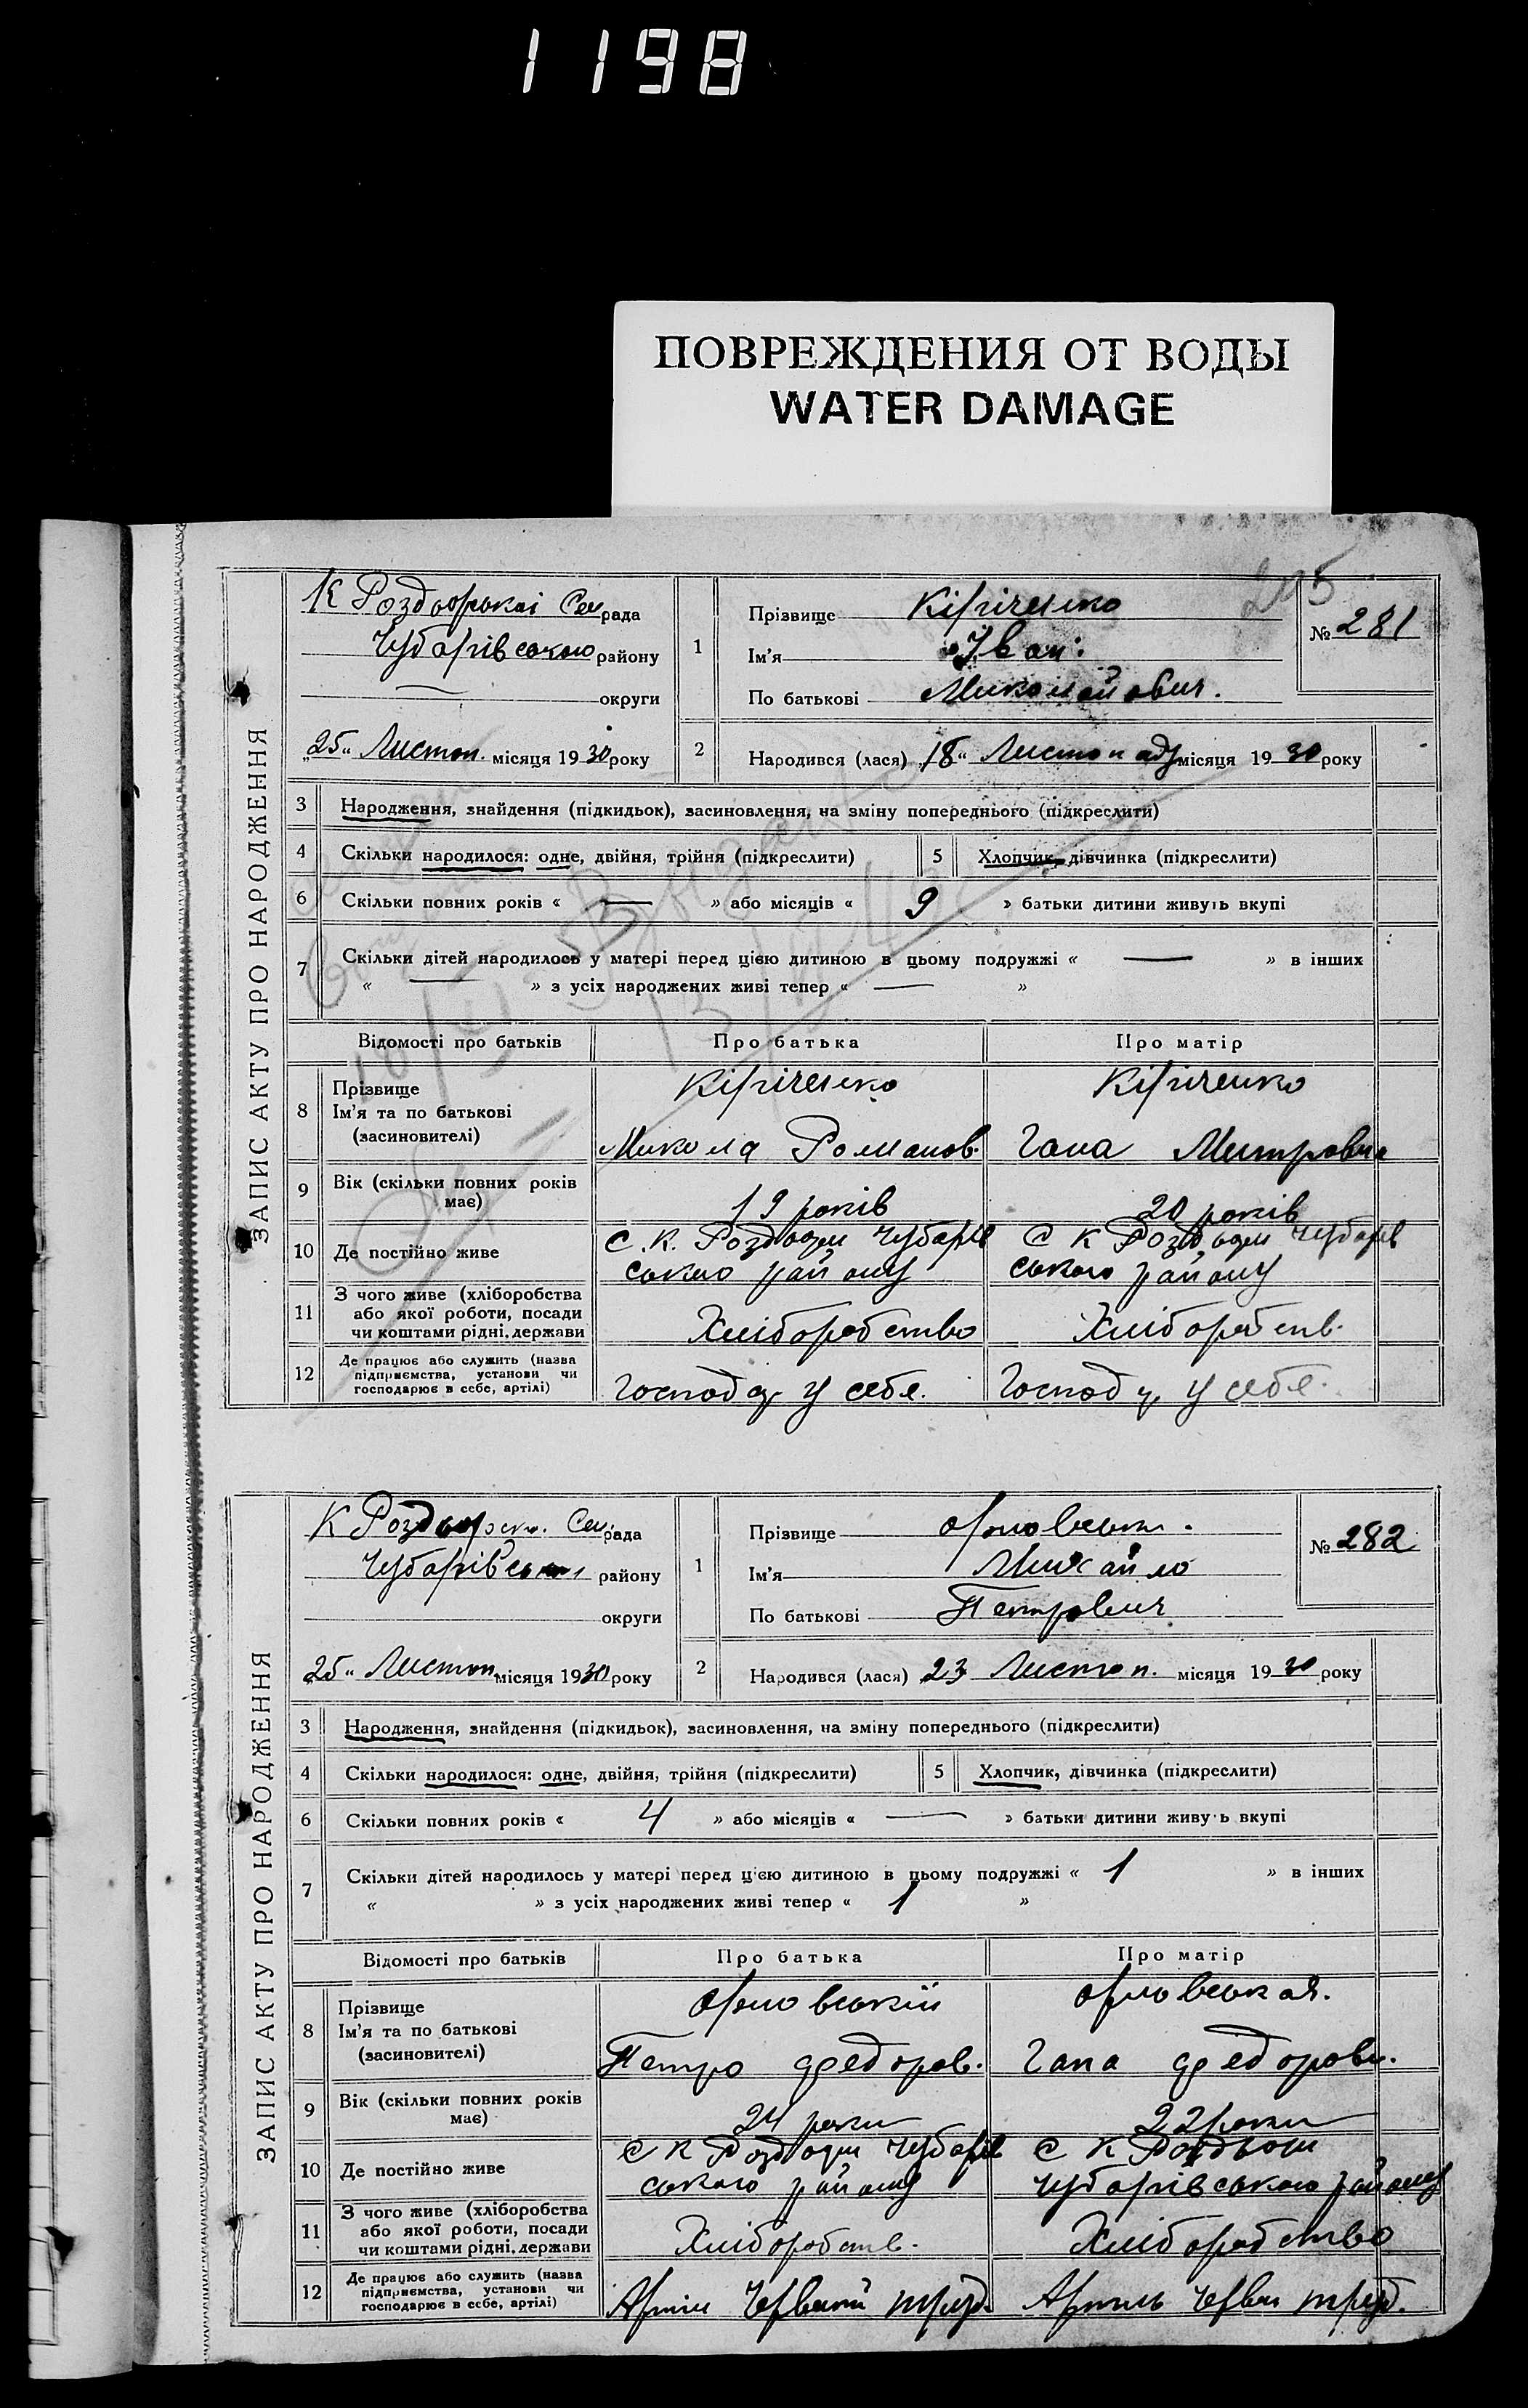 1198
ПОВРЕЖДЕНИЯ ОТ ВОДЫ
WATER DAMAGE
205
ЗАПИС АКТУ ПРО НАРОДЖЕННЯ
К Роздорської Сел рада
Чубарівського району
округи
„25“ Листоп. місяця 1930 року
1
Прізвище Кіріченко
Ім'я Іван.
По батькові Миколайович.
№ 281
2 Народився (лася) 18“ Листопаду місяця 1930 року
3 Народження, знайдення (підкидьок), засиновлення, на зміну попереднього (підкреслити)
4 Скільки народилося: одне, двійня, трійня (підкреслити) 5 Хлопчик, дівчинка (підкреслити)
6 Скільки повних років « — » або місяців « 9 » батьки дитини живуть вкупі
7 Скільки дітей народилось у матері перед цією дитиною в цьому подружжі « — » в інших
« — » з усіх народжених живі тепер « — »
Відомості про батьків Про батька Про матір
8 Прізвище
Ім'я та по батькові
(засиновителі)
Кіріченко
Микола Романов.
Кіріченко
Гана Митровна
9 Вік (скільки повних років має)
19 років 20 років
10 Де постійно живе
С. К. Роздори Чубарів
ського району
С К Роздори Чубарів
ського району
11 З чого живе (хліборобства
або якої роботи, посади
чи коштами рідні, держави
Хліборобство Хлібороб ств.
12 Де працює або служить (назва
підприємства, установи чи
господарює в себе, артілі)
Господ у себе. Господ у себе.
ЗАПИС АКТУ ПРО НАРОДЖЕННЯ
К Роздорск. Сел. рада
Чубарівськ району
округи
„25“ Листоп місяця 1930 року
1
Прізвище Орловськ.
Ім'я Михайло
По батькові Петрович
№ 282
2 Народився (лася) 23 Листоп. місяця 1930 року
3 Народження, знайдення (підкидьок), засиновлення, на зміну попереднього (підкреслити)
4 Скільки народилося: одне, двійня, трійня (підкреслити) 5 Хлопчик, дівчинка (підкреслити)
6 Скільки повних років « 4 » або місяців « — » батьки дитини живуть вкупі
7 Скільки дітей народилось у матері перед цією дитиною в цьому подружжі « 1 » в інших
« » з усіх народжених живі тепер « 1 »
Відомості про батьків Про батька Про матір
8 Прізвище
Ім'я та по батькові
(засиновителі)
Орловський
Петро Федоров.
Орловськая.
Гана Федоровн.
9 Вік (скільки повних років має)
24 роки 22 роки
10 Де постійно живе
С К Роздори Чубарів
ського району
С К Роздори
Чубарівського району
11 З чого живе (хліборобства
або якої роботи, посади
чи коштами рідні, держави
Хліборобств. Хліборобство
12 Де працює або служить (назва
підприємства, установи чи
господарює в себе, артілі)
Артіл Червоний труд. Артиль Червон труд.